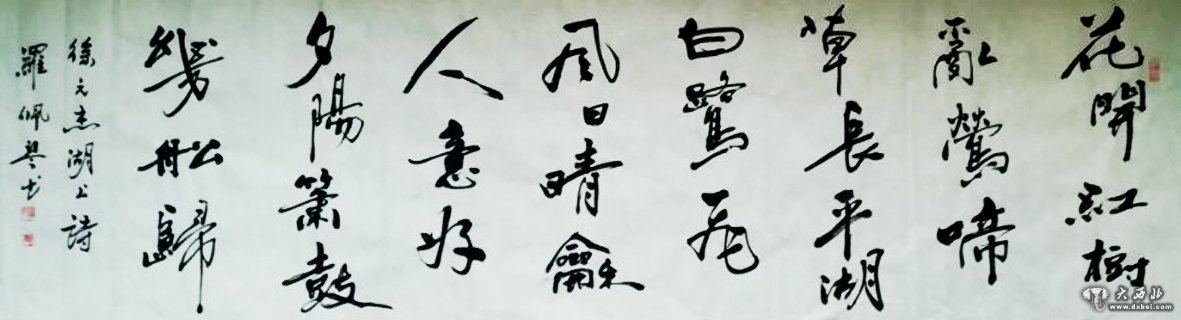 花開紅樹
亂鶯啼
草長平湖
白鷺飛
風日晴龢
人意好
夕陽簫鼓
幾舩歸
徐元杰湖上詩
羅佩琴书
大西北
www.dxbei.com